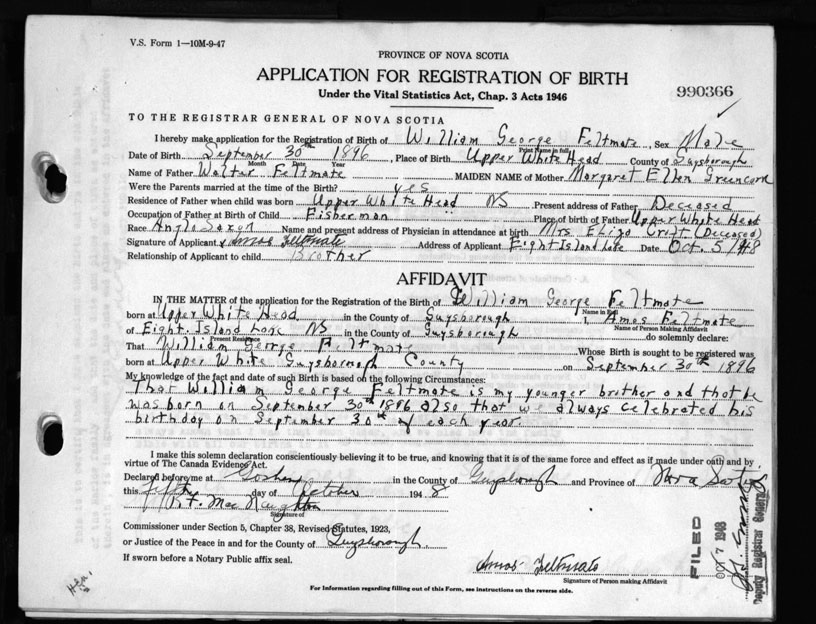 V.S. Form 1—10M-9-47
PROVINCE OF NOVA SCOTIA
APPLICATION FOR REGISTRATION OF BIRTH
990366
Under the Vital Statistics Act, Chap. 3 Acts 1946
TO THE REGISTRAR GENERAL OF NOVA SCOTIA
I hereby make application for the Registration of Birth of William George Feltmate, Sex Male
Print Name in full
Date of Birth September 30th 1896, Place of Birth Upper White Head County of Guysborough
Month Date Year
Name of Father Walter Feltmate MAIDEN NAME of Mother Margaret Ellen Greencorn
Were the Parents married at the time of the Birth? yes
Residence of Father when child was born Upper White Head NS Present address of Father Deceased
Occupation of Father at Birth of Child Fisherman Place of birth of Father Upper White Head
Race Anglo Saxon Name and present address of Physician in attendance at birth Mrs Eliza (Deceased)
Signature of Applicant x Amos Feltmate Address of Applicant Eight Island Lake Date Oct. 5/48
Relationship of Applicant to child Brother
AFFIDAVIT
IN THE MATTER of the application for the Registration of the Birth of William George Feltmate
Name in Full
born at Upper White Head in the County of Guysborough I, Amos Feltmate
Name of Person Making Affidavit
of Eight Island Lake NS in the County of Guysborough do solemnly declare:
Present Residence
That William George Feltmate Whose Birth is sought to be registered was
born at Upper White Guysborough County on September 30th 1896
My knowledge of the fact and date of such Birth is based on the following Circumstances:
That William George Feltmate is my younger brother and that he
was born on September 30th 1896 also that we always celebrated his
birthday on September 30th of each year.
I make this solemn declaration conscientiously believing it to be true, and knowing that it is of the same force and effect as if made under oath and by
virtue of The Canada Evidence Act.
Declared before me at Goshen in the County of Guysborough and Province of Nova Scotia
this fifth day of October 1948
Mac Naughton
Signature of
Commissioner under Section 5, Chapter 38, Revised Statutes, 1923,
or Justice of the Peace in and for the County of Guysborough.
If sworn before a Notary Public affix seal.
Amos Feltmate
Signature of Person making Affidavit
FILED
OCT 7 1948
Deputy Registrar General
For Information regarding filling out of this Form, see instructions on the reverse side.